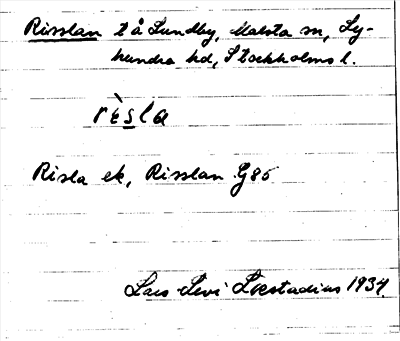 Risslan t å Lundby, Malsta sn, Ly-
hundra hd, Stockholms l.
rèsla
Risla ek, Risslan G85
Lars Levi Læstadius 1934.